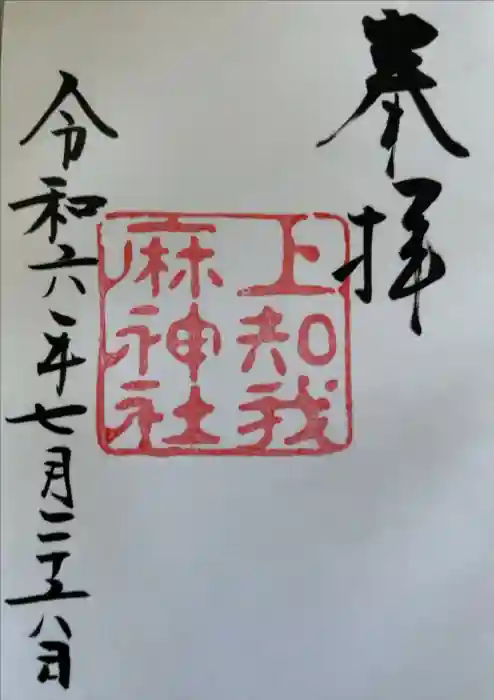 奉拝
上知我
麻神社
令和六年七月二十六日